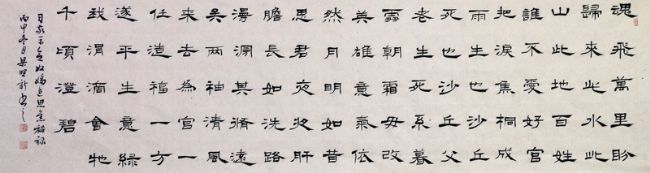 魂飛萬里盼
歸來此水此
山此地百姓
誰不愛好官
把淚焦桐成
雨生也沙丘
死也沙丘父
老生死系暮
雪朝霜毋改
英雄意氣依
然月明如昔
思君夜夜肝
膽長如洗路
漫漫其脩遠
矣兩袖清風
來去為官一
任造福一方
遂平生意綠
我涓滴會牠
千頃澄碧
習近平念奴嬌追思焦裕祿
丙申冬日